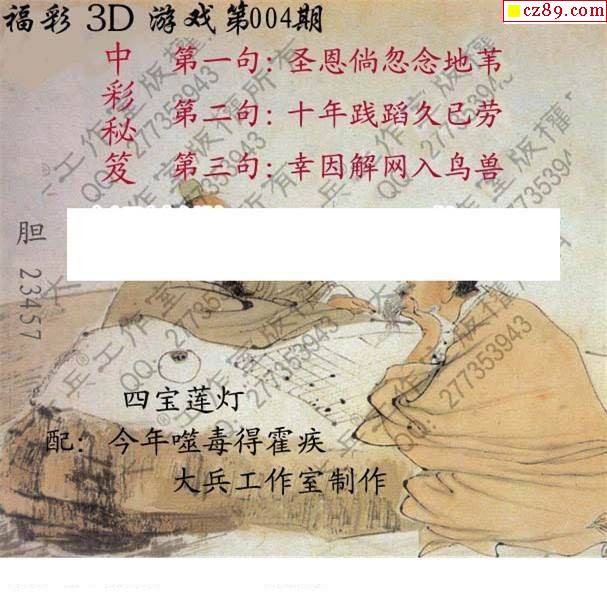 福彩 3D 游戏第004期
cz89.com
中彩秘笈
第一句：圣恩倘忽念地苇
第二句：十年践蹈久已劳
第三句：幸因解网入鸟兽
胆 23457
四宝莲灯
配：今年噬毒得霍疾
大兵工作室制作
大兵®工作室版权所有
QQ：277353943